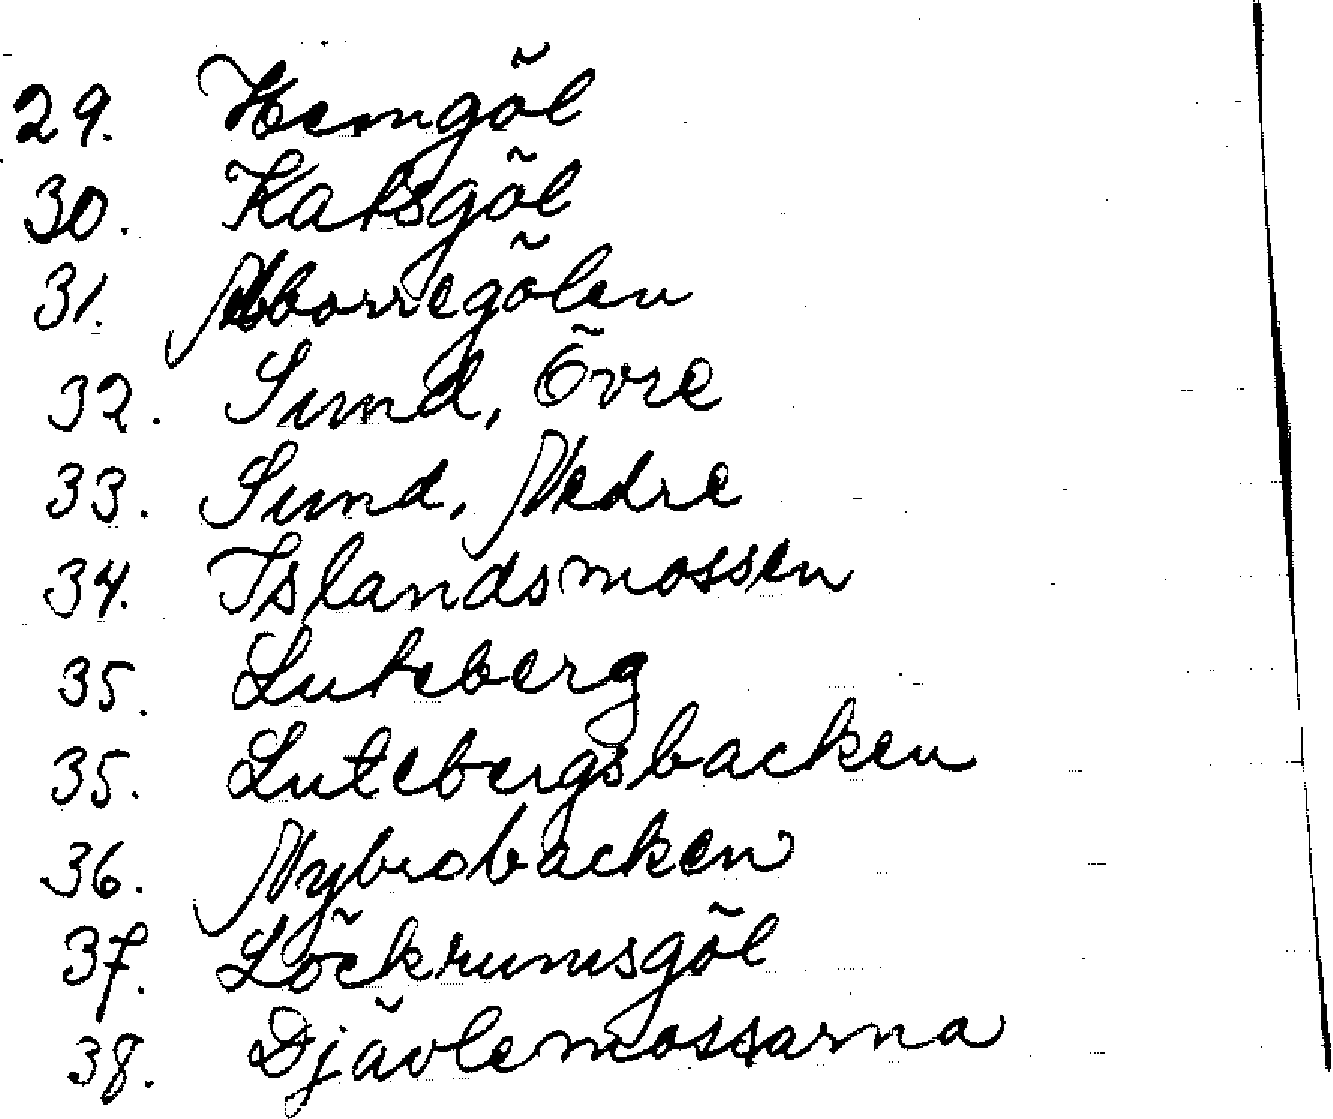 29. Hemgöl
30. Kaksgöl
31. Abborregölen
32. Sund, Övre
33. Sund, Nedre
34. Islandsmossen
35. Luteberg
35. Lutebergsbacken
36. Nybrobacken
37. Löckrumsgöl
38. Djävlemossarna